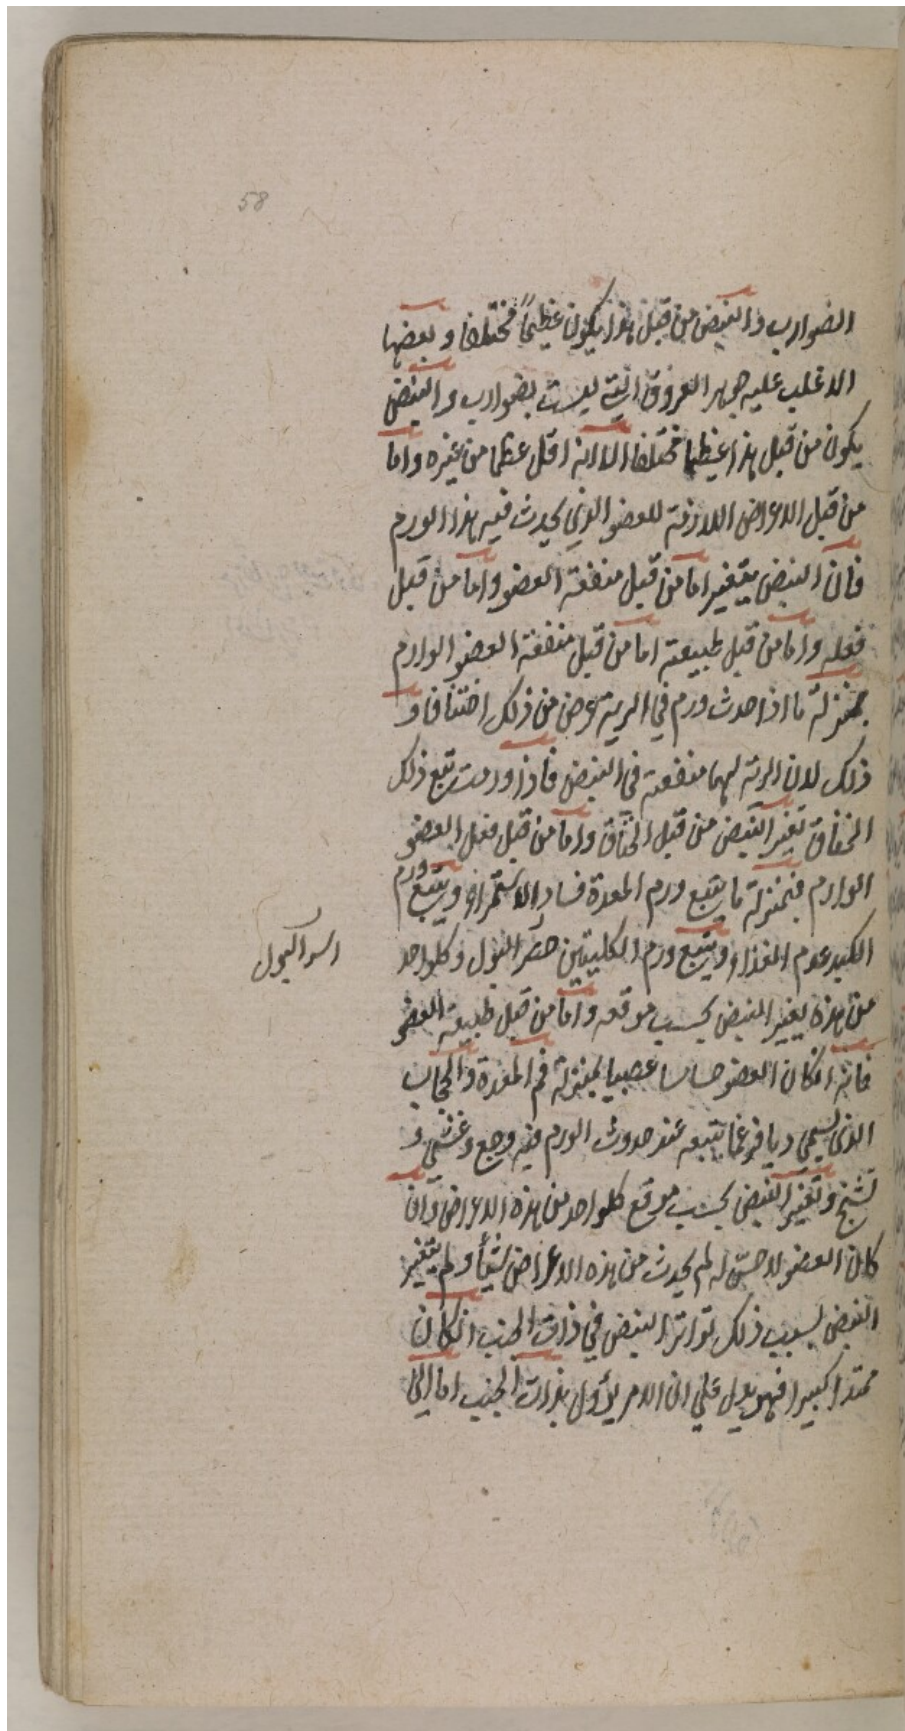 58
الضوارب والنبض من قبل هذا يكون عظيماً مختلفا وبعضها
الاغلب عليه جوهر العروق التي ليست بضوارب والنبض
يكون من قبل هذا عظيما مختلفا الا انه اقل عظما من غيره واما
من قبل الاعراض اللازمة للعضو الذي يحدث فيه هذا الورم
فان النبض يتغير اما من قبل منفعة العضو واما من قبل
فعله واما من قبل طبيعته اما من قبل منفعة العضو الوارم
بمنزلة ما اذا حدث ورم في الرية عرض من ذلك اختناق و
ذلك لان الرئة لها منفعة في النبض فاذا ورمت يتبع ذلك
الخناق تغير النبض من قبل الخناق واما من قبل فعل العضو
الوارم فبمنزلة ما يتبع ورم المعدة فساد الاستمراء ويتبع ورم
الكبد عدم الغذاء ويتبع ورم الكليتين حصر البول وكلواحد
اسر البول
من هذه يغير النبض بحسب موقعه واما من قبل طبيعة العضو
فانه انكان العضو حساسا عصبيا بمنزلة فم المعدة والحجاب
الذي يسمى ديافرغما يتبعه عند حدوث الورم فيه وجع وغشي و
تشنج وتغير النبض بحسب موقع كلواحد من هذه الاعراض وان
كان العضو لا حسّ له لم يحدث من هذه الاعراض شيأ ولم يتغير
النبض بسبب ذلك تواتر النبض في ذات الجنب انكان
ممتدا كبيرا فهو يدل على ان الامر يؤول بذات الجنب اما الى